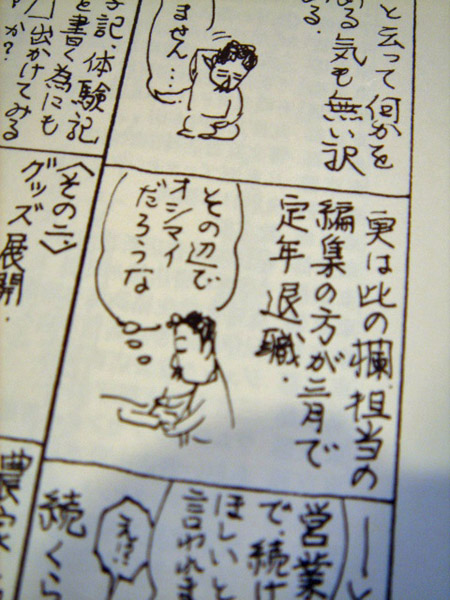 と云って何かを
る気も無い訳
る。
ません…
記、体験記
を書く為にも
出かけてみる
か?
実は此の欄担当の
編集の方が三月で
定年退職.
その辺で
オシマイ
だろうな
〈その二〉
グッズ展開.
営業
で、続け
ほしいと
言われま
えっ!?
続くら
農家